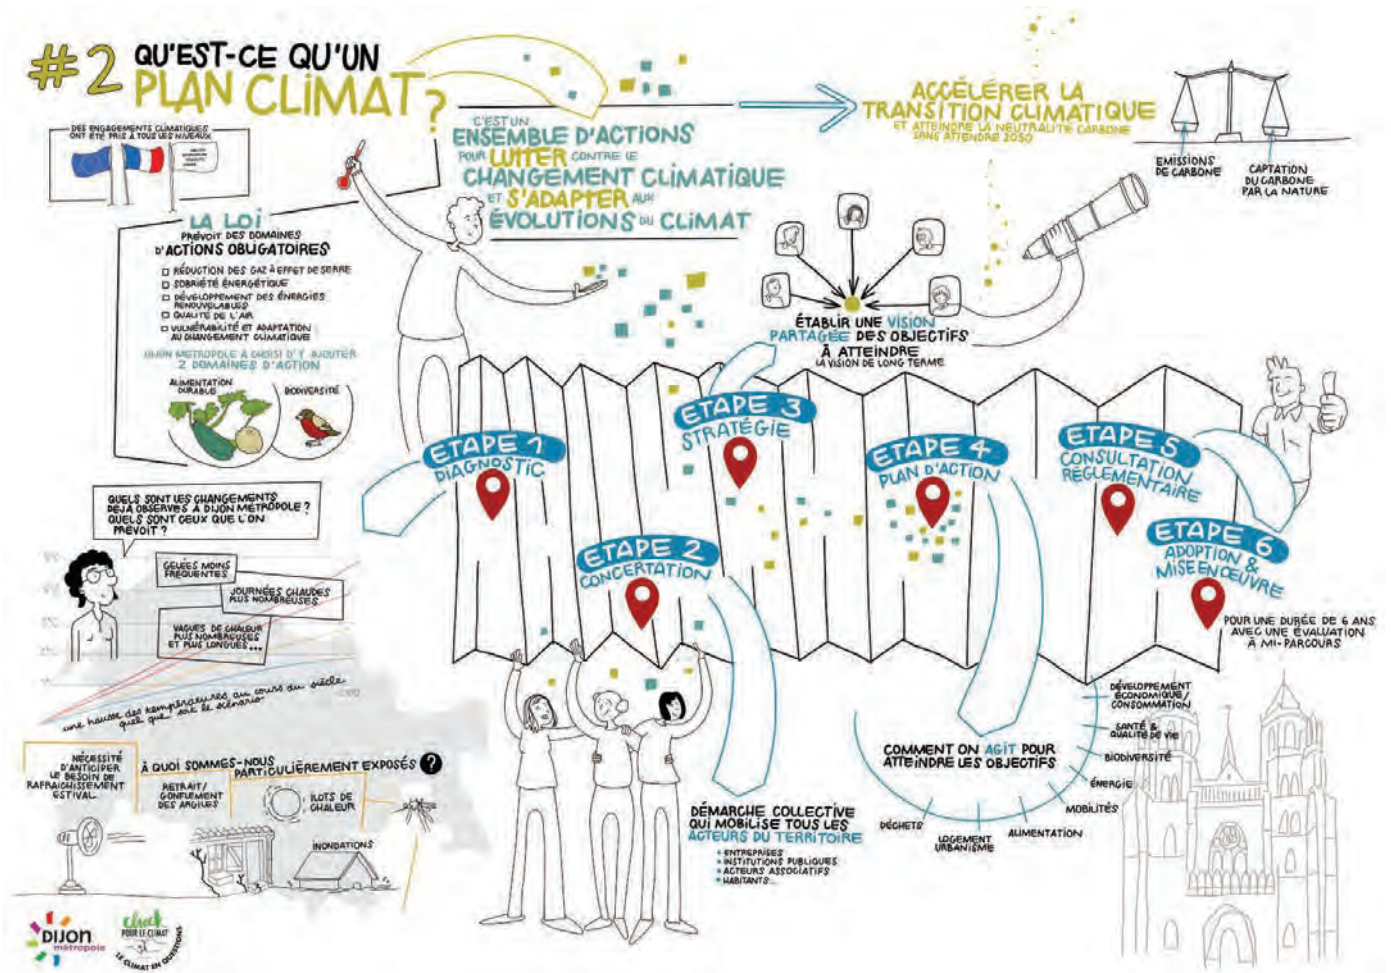 #2 QU'EST-CE QU'UN
PLAN CLIMAT ?
DES ENGAGEMENTS CLIMATIQUES
ONT ÉTÉ PRIS À TOUS LES NIVEAUX
C'EST UN
ENSEMBLE D'ACTIONS
POUR LUTTER CONTRE LE
CHANGEMENT CLIMATIQUE
ET S'ADAPTER AUX
ÉVOLUTIONS DU CLIMAT
ACCÉLÉRER LA
TRANSITION CLIMATIQUE
ET ATTEINDRE LA NEUTRALITÉ CARBONE
SANS ATTENDRE 2050
EMISSIONS
DE CARBONE
CAPTATION
DU CARBONE
PAR LA NATURE
LA LOI
PRÉVOIT DES DOMAINES
D'ACTIONS OBLIGATOIRES
RÉDUCTION DES GAZ À EFFET DE SERRE
SOBRIÉTÉ ÉNERGÉTIQUE
DÉVELOPPEMENT DES ÉNERGIES
RENOUVELABLES
QUALITÉ DE L'AIR
VULNÉRABILITÉ ET ADAPTATION
AU CHANGEMENT CLIMATIQUE
DIJON MÉTROPOLE A CHOISI D'Y AJOUTER
2 DOMAINES D'ACTION
ALIMENTATION
DURABLE
BIODIVERSITÉ
ÉTABLIR UNE VISION
PARTAGÉE DES OBJECTIFS
À ATTEINDRE
LA VISION DE LONG TERME
ETAPE 1
DIAGNOSTIC
ETAPE 2
CONCERTATION
ETAPE 3
STRATÉGIE
ETAPE 4
PLAN D'ACTION
ETAPE 5
CONSULTATION
RÉGLEMENTAIRE
ETAPE 6
ADOPTION &
MISE EN ŒUVRE
POUR UNE DURÉE DE 6 ANS
AVEC UNE ÉVALUATION
À MI-PARCOURS
QUELS SONT LES CHANGEMENTS
DÉJÀ OBSERVÉS À DIJON MÉTROPOLE ?
QUELS SONT CEUX QUE L'ON
PRÉVOIT ?
GELÉES MOINS
FRÉQUENTES
JOURNÉES CHAUDES
PLUS NOMBREUSES
VAGUES DE CHALEUR
PLUS NOMBREUSES
ET PLUS LONGUES...
une hausse des températures au cours du siècle
quel que soit le scénario
NÉCESSITÉ
D'ANTICIPER
LE BESOIN DE
RAFRAICHISSEMENT
ESTIVAL
À QUOI SOMMES-NOUS
PARTICULIÈREMENT EXPOSÉS ?
RETRAIT/
GONFLEMENT
DES ARGILES
ILOTS DE
CHALEUR
INONDATIONS
DÉMARCHE COLLECTIVE
QUI MOBILISE TOUS LES
ACTEURS DU TERRITOIRE
+ ENTREPRISES
+ INSTITUTIONS PUBLIQUES
+ ACTEURS ASSOCIATIFS
+ HABITANTS...
COMMENT ON AGIT POUR
ATTEINDRE LES OBJECTIFS
DÉVELOPPEMENT
ÉCONOMIQUE/
CONSOMMATION
SANTÉ &
QUALITÉ DE VIE
BIODIVERSITÉ
ÉNERGIE
MOBILITÉS
ALIMENTATION
LOGEMENT
URBANISME
DÉCHETS
DIJON
métropole
Clock
POUR LE CLIMAT
LE CLIMAT EN QUESTIONS